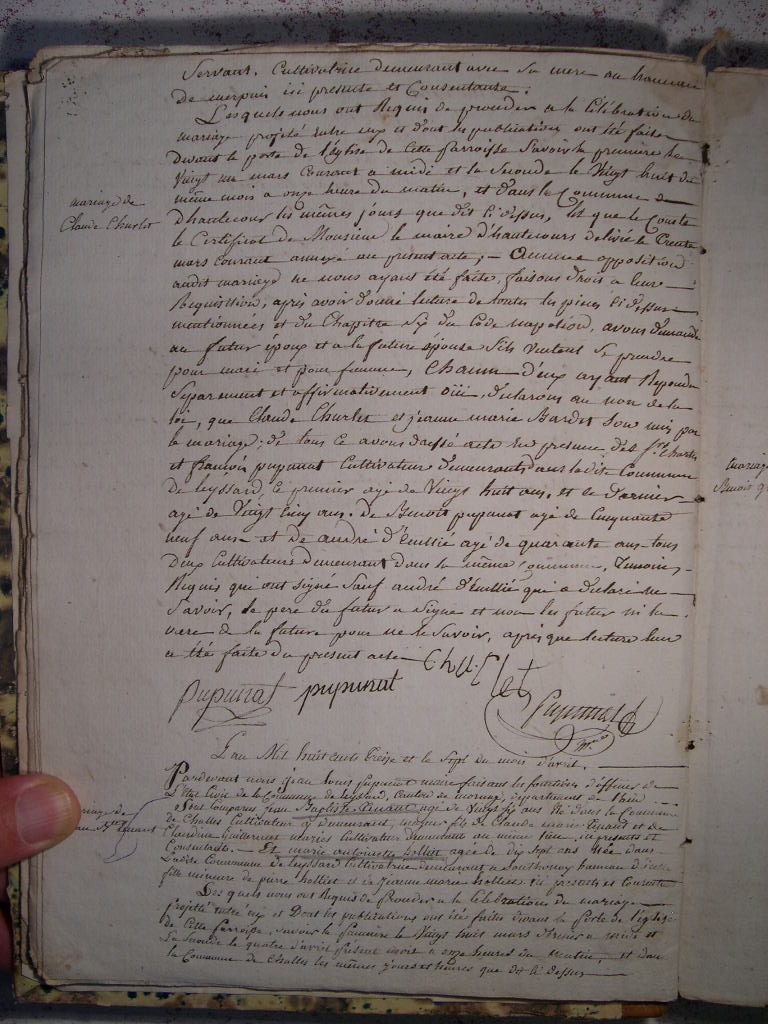 Servant, Cultivatrice demeurant avec sa mere au hameau
de merpuis ici presente et Consentante;
Lesquels nous ont Requis de proceder a la Célébration du
mariage projeté entre eux et dont les publications ont été faites
devant la porte de l'église de Cette Parroisse savoir la premiere le
Vingt un mars Courant a midi et la Seconde le Vingt huit du
même mois a onze heure du matin, et dans la Commune
mariage de
Claude Churlet
d'hautecour les mêmes jours que dit Ci dessus, tel que le Conste
le Certificat de Monsieur le maire d'hautecours delivré le Trente
mars courant annexé au present acte; — Aucune opposition
audit mariage ne nous ayant été faite, faisons droit a leur
Requisition; après avoir donné lecture de toutes les pieces Ci dessus
mentionnées et du Chapitre Six du Code napoléon, avons demandé
au futur époux et a la future épouse s'ils veulent se prendre
pour mari et pour femme, Chacun d'eux ayant Repondu
Séparement et affirmativement oui, déclarons au nom de la
loi, que Claude Churlet et jeanne marie Bardet sont unis par
le mariage; de tous ce avons dressé acte en presence des
et francois pupunat Cultivateur demeurants dans la dite Commune
de leyssard, le premier agé de Vingt huit ans, et le dernier
agé de Vingt Cinq ans. de Benoit pupunat agé de Cinquante
neuf ans — et de andré d'Emillié agé de quarante ans tous
deux Cultivateurs demeurant dans la même Commune, Temoins
Requis qui ont signé Sauf andré d'Emillié qui a declaré ne
Savoir, le pere du futur a Signé et non les futur ni la
mere de la future pour ne le Savoir, après que lecture leur
a été faite du present acte
pupunat pupunat
Pupunat
L'an Mil huit cents Treize et le Sept du mois d'avril.
Pardevant nous jean louis pupunat maire faisant les fonctions d'officier de
l'Etat Civil de la Commune de leyssard, Canton de , département de l'ain
Sont Comparus jean Baptiste agé de Vingt ans Né dans la Commune
de Challes Cultivateur y demeurant, majeur fils de Claude marie et de
Claudine Guillermet mariés Cultivateur demeurant au même lieu, ici presents et
Consentants. — Et marie antoinette hollict agée de dix Sept ans Née dans
Ladite Commune de leyssard Cultivatrice demeurant a hameau
fille mineure de pierre hollict et de jeanne marie hollict ici presents et Consentants
Les quels nous ont Requis de Proceder a la Célébration du mariage
projetté entre eux et Dont les publications ont été faites devant la Porte de l'église
de Cette Parroisse, Savoir la premiere le Vingt huit mars dernier a midi et
La Seconde le quatre d'avril présent mois a onze heures du matin, et dans
la Commune de Challes les mêmes jours et heures que dit Ci dessus
mariage
Benoit